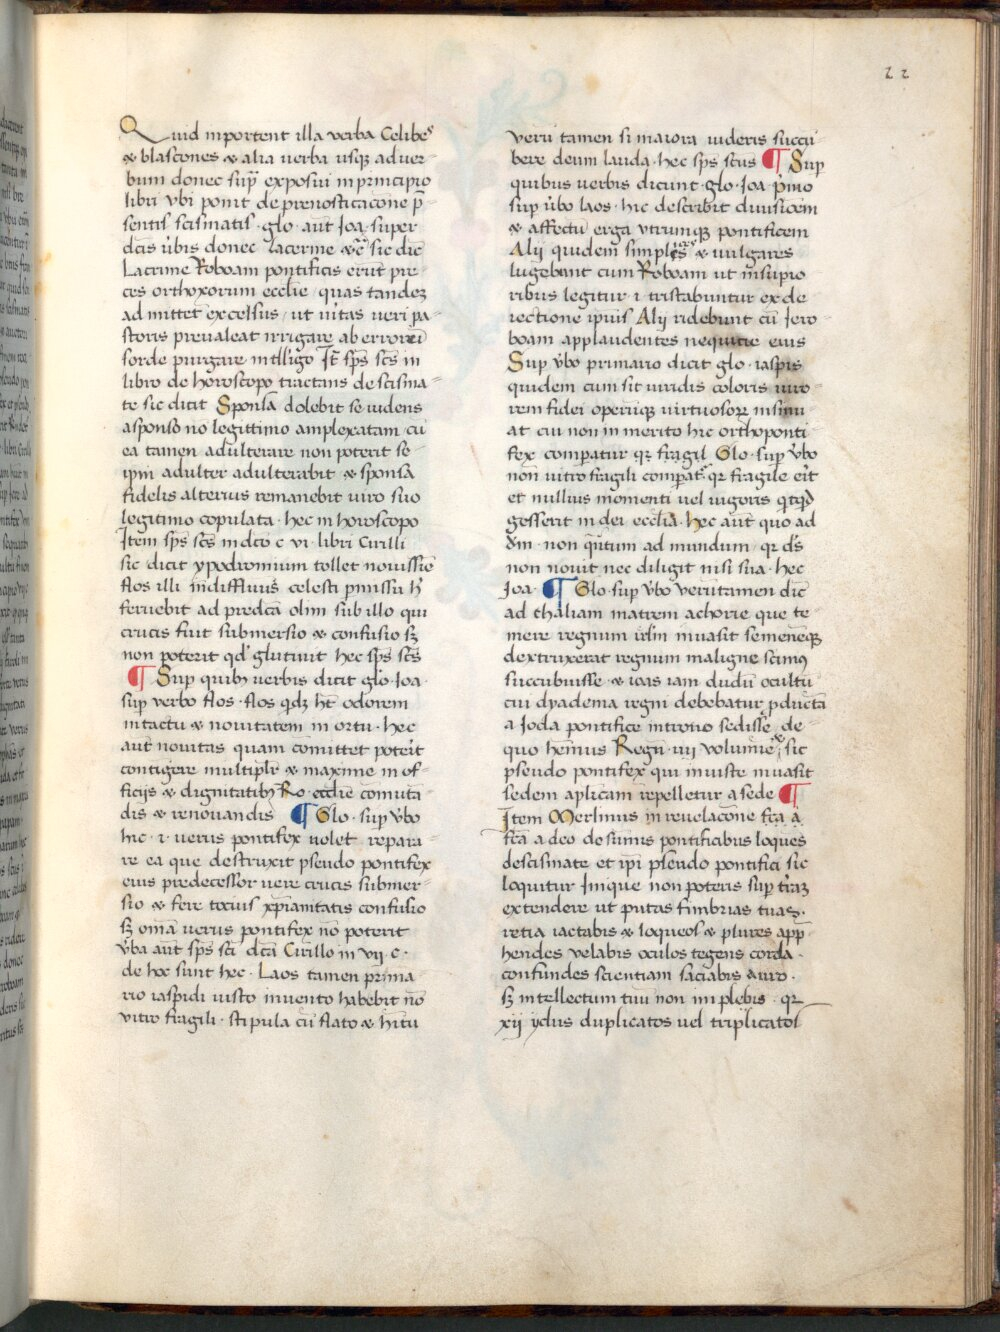 22
Quid inportent illa verba Celibes
& blascones & alia uerba usq₃ aduer-
bum donec sup̄ exposui in principio
libri vbi ponit de prenosticacione p̄-
sentis scismatis · glo · aūt Joa · super
dc̄is ûbis donec lacrime &c̄ sic dic̄
Lacrime Roboam pontificis erūt pre-
ces orthoxorum eccl̄ie quas tandez
ad mittet excelsus / ut uītas ueri pa-
storis preualeat irrigare ab errore
sorde purgare intll̄igo Jt̄ sp̄s sc̄s in
libro de horoscopo tractans de scisma-
te sic dicit Sponsa dolebit se uidens
a sponso nō legittimo amplexatam cū
ea tamen adulterare non poterit se-
adulter adulterabit & sponsa
fidelis alterius remanebit uiro suo
legitimo copulata · hec in horoscopo
Jtem sp̄s sc̄s in dc̄o c vi · libri Cirilli
sic dicit ypodromium tollet nouissīe
flos illi indiffiuus celesti p̄missu h̄
feruebit ad predc̄a olim sub illo qui
crucis fuit submersio & confusio sȝ
non poterit qd' glutiuit hec sp̄s sc̄s
¶ Sup quibȝ uerbis dicit glo · Joa ·
sup verbo flos · flos qdȝ ht̄ odorem
intactu & nouitatem in ortu · hec
aūt nouitas quam cōmittet poterit
contigere multiplr̄ & maxime in of-
ficijs & dignitatibȝ Ro · eccl̄ie comuta
dis & renouandis ¶ Glo · sup v̄bo
hic · i · uerus pontifex uolet repara-
re ea que destruxit pseudo pontifex
eius predecessor uere crucis submer-
sio & fere tocius xp̄ianitatis confusio
sȝ om̄ia uerus pontifex nō poterit
v̄ba aūt sp̄s sc̄i dc̄a Cirillo in vij · c ·
de hoc sunt hec · Laos tamen prima-
rio iaspidi iusto inuento habebit nō
vitro fragili · stipula cū flato &
verū tamen si maiora uideris succū
bere deum lauda · hec sp̄s sc̄us ¶ Sup
quibus uerbis dicunt · glo · Joa p̄mo
sup v̄bo laos · hic describit diuisicem
& affectū erga vtrumq₃ pontificem
Alij quidem simplices & uulgares
lugebant cum Roboam ut in supio
ribus legitur · i · tristabuntur ex de
iectione ipsius Alij ridebunt cū Jero-
boam applaudentes nequitie eius
Sup v̄bo primario dicit glo · iaspis
quidem cum sit uiridis coloris uiro-
rem fidei operūq₃ uirtuosorȝ insinu-
at cui non in merito hic orthoponti-
fex comparatur qȝ fragil Glo · sup v̄bo
non uitro fragili comparat qȝ fragile erit
et nullius momenti uel uigoris
gesserit in dei eccl̄ia · hec aūt quo ad
dm̄ · non ad mundum · qȝ d̄s
non nouit nec diligit nisi sua · hec
Joa · ¶ Glo · sup v̄bo uerūtamen dic̄
ad thaliam matrem achorie que te-
mere regnum irl̄m inuasit semenq₃
dextruxerat regnum maligne scimus
succubuisse · & ioas iam dudū ocultū
cui dyadema regni debebatur p̄ductā
a Joda pontifice in trono sedisse de-
quo hēmus Regū · iiij volumīe / sic
pseudo pontifex qui iniuste inuasit
sedem apl̄icam repelletur a sede ¶
Jtem Merlinus in reuelacōne fc̄a a
fc̄ā a deo de sūmis pontificibus loques
de scismate et ip̄i pseudo pontifici sic
loquitur Jnique non poteris sup
extendere ut putas fimbrias tuas ·
retia iactabis & loqueos & plures app̄-
hendes velabis oculos tegens corda ·
confundes scientiam saciabis auro ·
sȝ intellectum tuū non plebis · qȝ
xij ydus duplicatos uel triplicatos